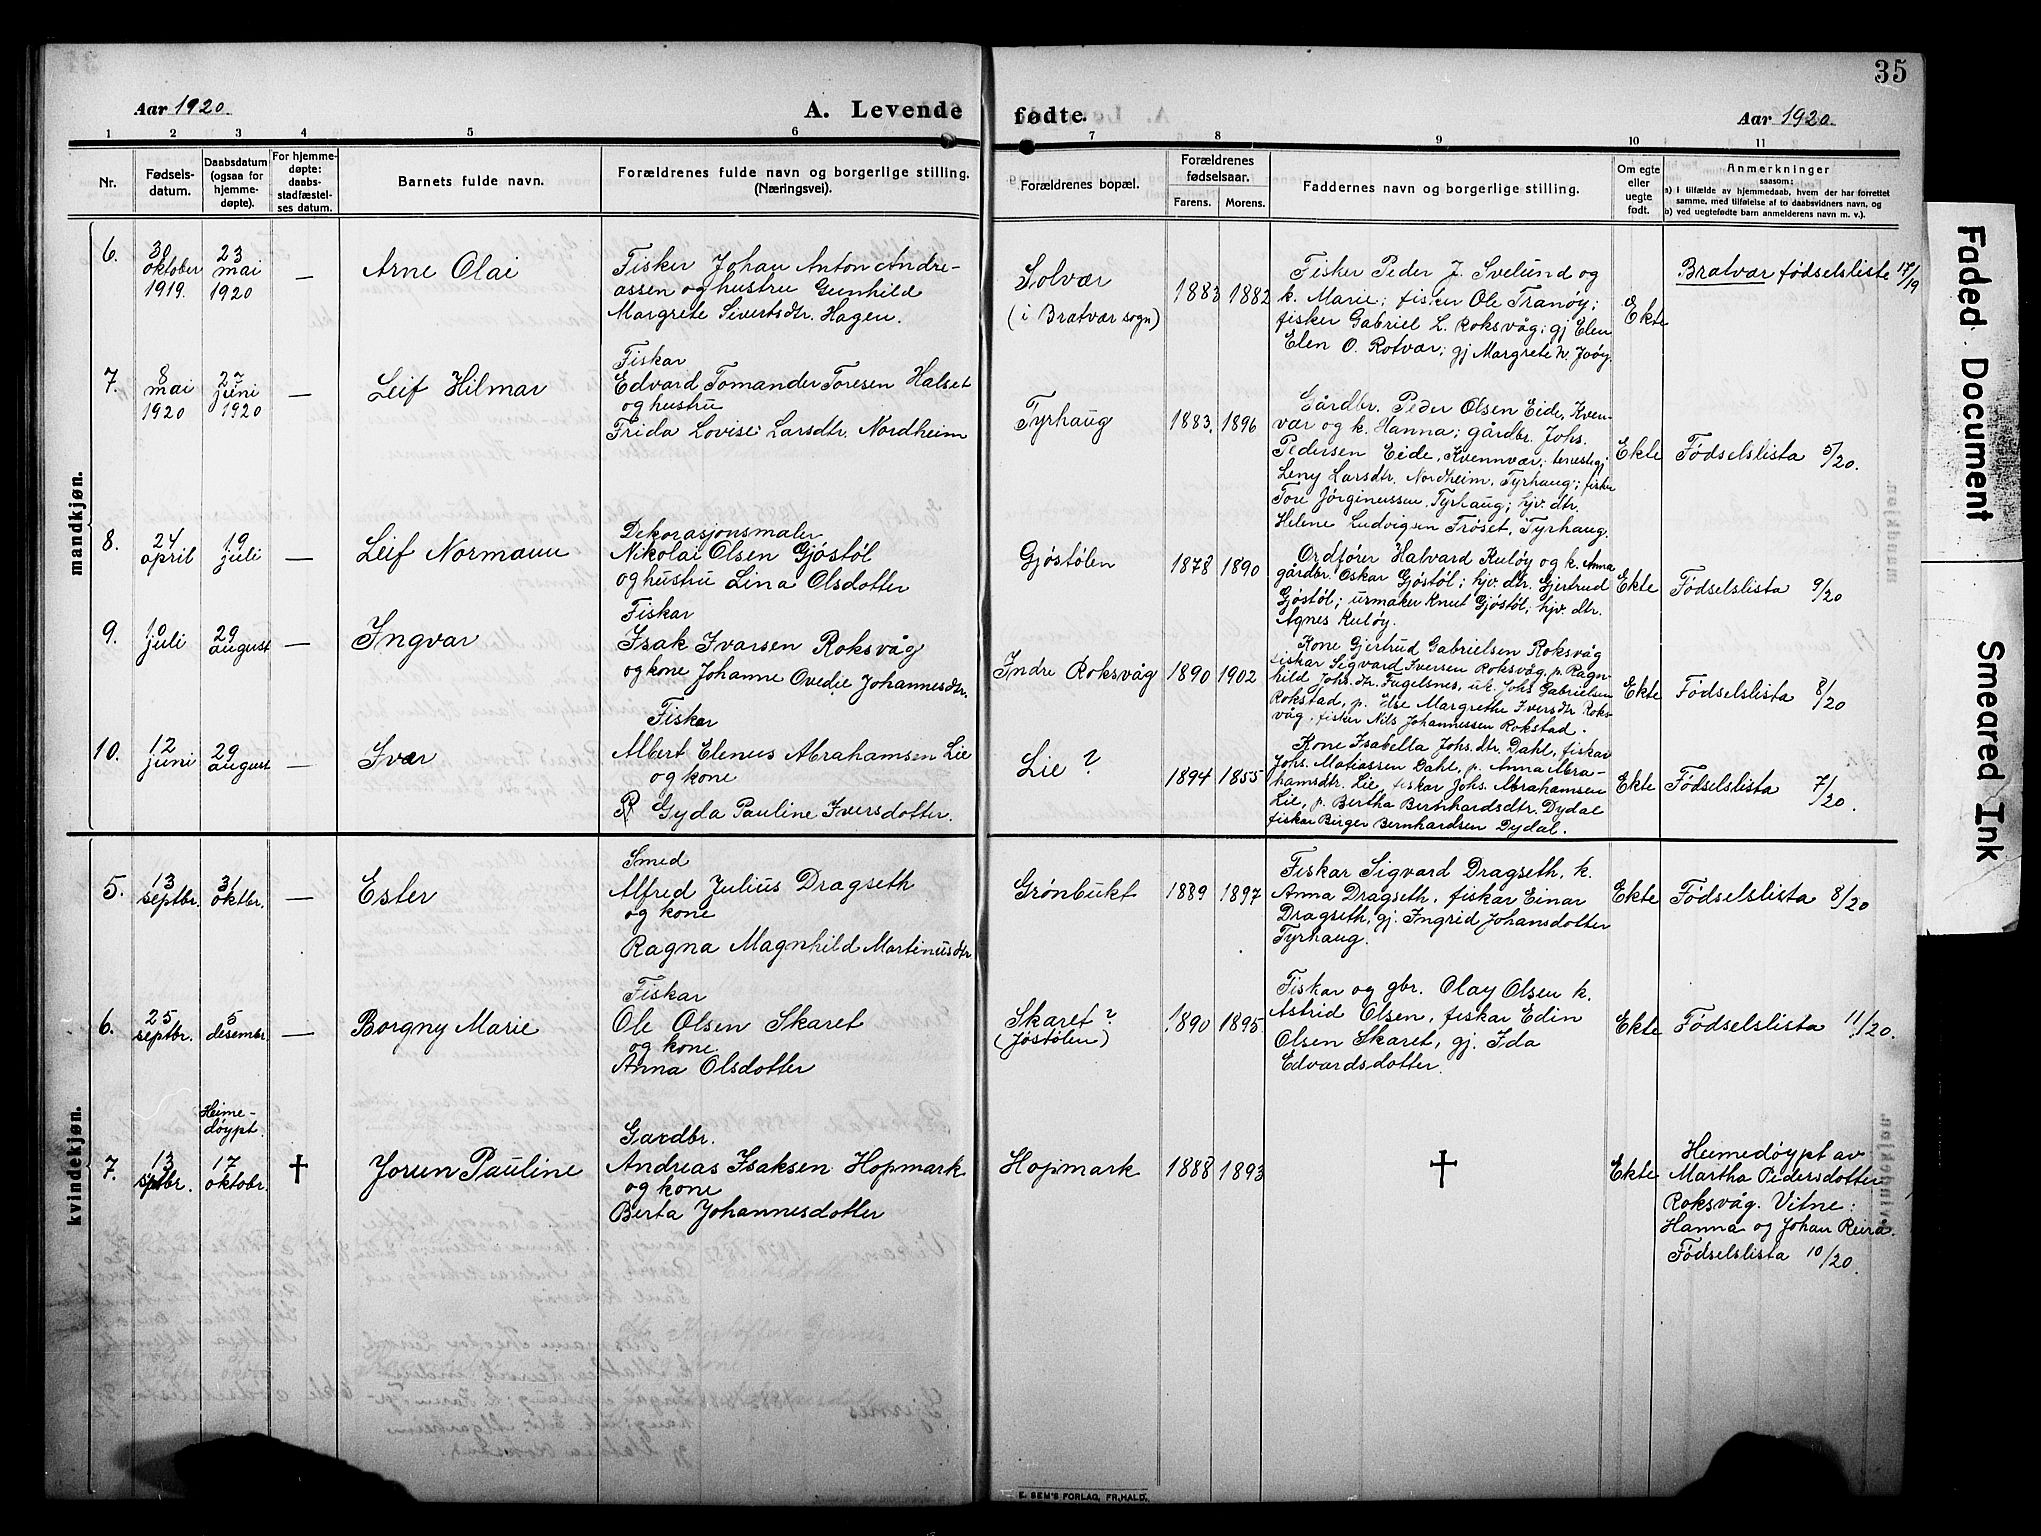 35
Aar 1920.
A. Levende
fødte.
Aar 1920.
1 2 3 4 5 6 7 8 9 10 11
Nr.
Fødsels-
datum.
Daabsdatum
(ogsaa for
hjemme-
døpte).
For hjemme-
døpte:
daabs-
stadfæstel-
ses datum.
Barnets fulde navn.
Forældrenes fulde navn og borgerlige stilling.
(Næringsvei).
Forældrenes bopæl.
Forældrenes
fødselsaar.
Farens. Morens.
Faddernes navn og borgerlige stilling.
Om egte
eller
uegte
født.
Anmerkninger
saasom:
a) i tilfælde av hjemmedaab, hvem der har forrettet
samme, med tilføielse af to daabsvidners navn, og
b) ved uegtefødte barn anmelderens navn m. v.).
mandkjøn.
6.
30
oktober
1919.
23
mai
1920
—
Arne Olai
Fisker Johan Anton Andre-
assen og hustru Gunhild
Margrete Sivertsdtr. Hagen.
Solvær
(i Bratvær sogn)
1883 1882
Fisker Peder J. Svelund og
k. Marie; fisker Ole Tranøy;
fisker Gabriel L. Roksvåg; gj Elen
Elen O. Rotvær; gj Margrete N. Joøy.
Ekte
Bratvær fødselsliste 17/19
7.
8
mai
1920
27
juni
1920
—
Leif Hilmar
Fiskar
Edvard Tomander Toresen Halset
og hustru
Frida Lovise Larsdtr. Nordheim
Tyrhaug
1883. 1896
Gårdbr. Peder Olsen Eide, Kven-
vær og k. Hanna; gårdbr. Johs.
Pedersen Eide, Kvennvær; tenestegj
Leny Larsdtr. Nordheim, Tyrhaug; fisker
Tore Jørginussen, Tyrhaug; hjv. dtr.
Helene Ludvigsen Frøset, Tyrhaug.
Ekte
Fødselslista 5/20.
8.
24
april
19
juli
—
Leif Normann
Dekorasjonsmaler
Nikolai Olsen Gjøstøl
og hustru Lina Olsdotter
Gjøstølen
1878 1890
Ordfører Halvard Kuløy og k. Anna
gårdbr. Oskar Gjøstøl; hjv. dtr. Gjertrud
Gjøstøl; urmaker Knut Gjøstøl, hjv. dtr.
Agnes Kuløy.
Ekte
Fødselslista 9/20
9.
10
juli
29
august
—
Ingvar
Fiskar
Isak Ivarsen Roksvåg
og kone Johanne Ovedie Johannesdtr.
Indre Roksvåg
1890 1902
Kone Gjertrud Gabrielsen Roksvåg
fiskar Sigvard Iversen Roksvåg, p. Ragn-
hild Johs. dtr. Fugelsnes, uk. Johs Gabrielsen
Rokstad, p. Else Margrethe Iversdtr Roks-
våg, fisker Nils Johannessen Rokstad.
Ekte
Fødselslista 8/20
10.
12
juni
29
august
—
Ivar
Fiskar
Albert Elenus Abrahamsen Lie
og kone
Gyda Pauline Iversdotter.
Lie?
1894 1855
Kone Isabella Johs. dtr. Dahl, fiskar
Johs. Matiassen Dahl, p. Anna Abra-
hamsdtr. Lie, fiskar Johs. Abrahamsen
Lie, p. Bertha Bernhardsdtr. Dydal
fiskar Birger Bernhardsen Dydal.
Ekte
Fødselslista 7/20.
kvindekjøn.
5.
13
septbr.
31
oktbr.
—
Ester
Smed
Alfred Julius Dragseth
og kone
Ragna Magnhild Martinusdtr
Grønbukt
1889 1897
Fiskar Sigvard Dragseth, k.
Anna Dragseth, fiskar Einar
Dragseth, gj. Ingrid Johansdotter
Tyrhaug.
Ekte
Fødselslista 8/20
6.
25
septbr.
5
desembr.
—
Borgny Marie
Fiskar
Ole Olsen Skaret
og kone
Anna Olsdotter
Skaret?
(Jøstølen)
1890 1895
Fiskar og gbr. Olay Olsen k.
Astrid Olsen, fiskar Edin
Olsen Skaret, gj. Ida
Edvardsdotter.
Ekte
Fødselslista 11/20.
7.
13
septbr.
Heime-
døypt.
17
oktobr.
†
Jorun Pauline
Gardbr.
Andreas Isaksen Hopmark
og kone
Berta Johannesdotter
Hopmark
1888 1893
†
Ekte
Heimedøypt av
Martha Pedersdotter
Roksvåg. Vitne:
Hanna og Johan Reira.
Fødselslista 10/20.
E. SEM'S FORLAG, FR.HALD.
Faded Document
Smeared Ink